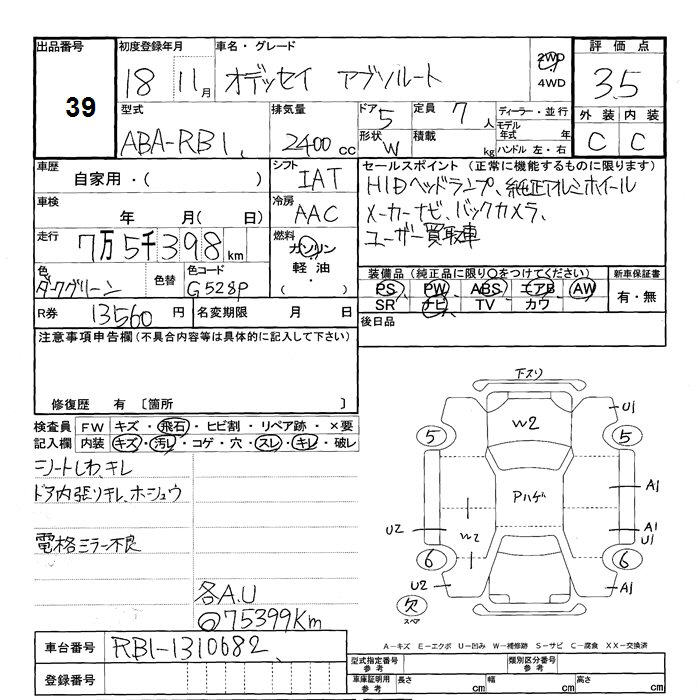 出品番号 初度登録年月 車名・グレード 評価点
39 18 11月 オデッセイ アブソルート 2WD 4WD 3.5
型式 排気量 ドア 5 定員 7 人 ディーラー・並行 外装 内装
ABA-RB1 2400 cc 形状 W 積載 kg モデル年式 年 ハンドル 左・右 C C
車歴 シフト セールスポイント (正常に機能するものに限ります)
自家用・( ) IAT HIDヘッドランプ、純正アルミホイール
車検 冷房 メーカーナビ、バックカメラ、
年 月( 日) AAC ユーザー買取車
走行 燃料
7万5千398km ガソリン・軽油・( )
装備品 (純正品に限り○をつけてください) 新車保証書
色 色替 色コード PS PW ABS エアB AW 有・無
ダークグリーン G528P SR ナビ TV カワ
R券 13560 円 名変期限 月 日 後日品
注意事項申告欄 (不具合内容等は具体的に記入して下さい)
修復歴 有 〔箇所 〕
検査員 FW キズ・飛石・ヒビ割・リペア跡・×要
記入欄 内装 キズ・汚レ・コゲ・穴・スレ・キレ・破レ
シートしわ、キレ
ドア内張りキレ、ホシュウ
電格ミラー不良
各A.U
◎75399Km
下スリ
W2 U1
5 5
Pハゲ A1
U2 W2 A1 U1
6 6
U2 A1
欠 スペア
A－キズ E－エクボ U－凹み W－補修跡 S－サビ C－腐食 XX－交換済
車台番号 RB1-1310682
登録番号
型式指定番号 参考 類別区分番号 参考
車庫証明用 参考 長さ cm 幅 cm 高さ cm